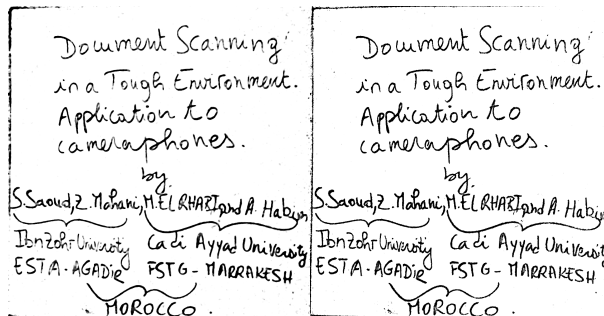 Document Scanning
in a Tough Environment.
Application to
cameraphones.
by
S.Saoud, Z. Mahani, M.EL RHABI, and A. Hakim
Ibn Zohr University
ESTA-AGADIR
Cadi Ayyad University
FSTG - MARRAKESH
MOROCCO.
Document Scanning
in a Tough Environment.
Application to
cameraphones.
by
S.Saoud, Z. Mahani, M.EL RHABI, and A. Hakim
Ibn Zohr University
ESTA-AGADIR
Cadi Ayyad University
FSTG - MARRAKESH
MOROCCO.